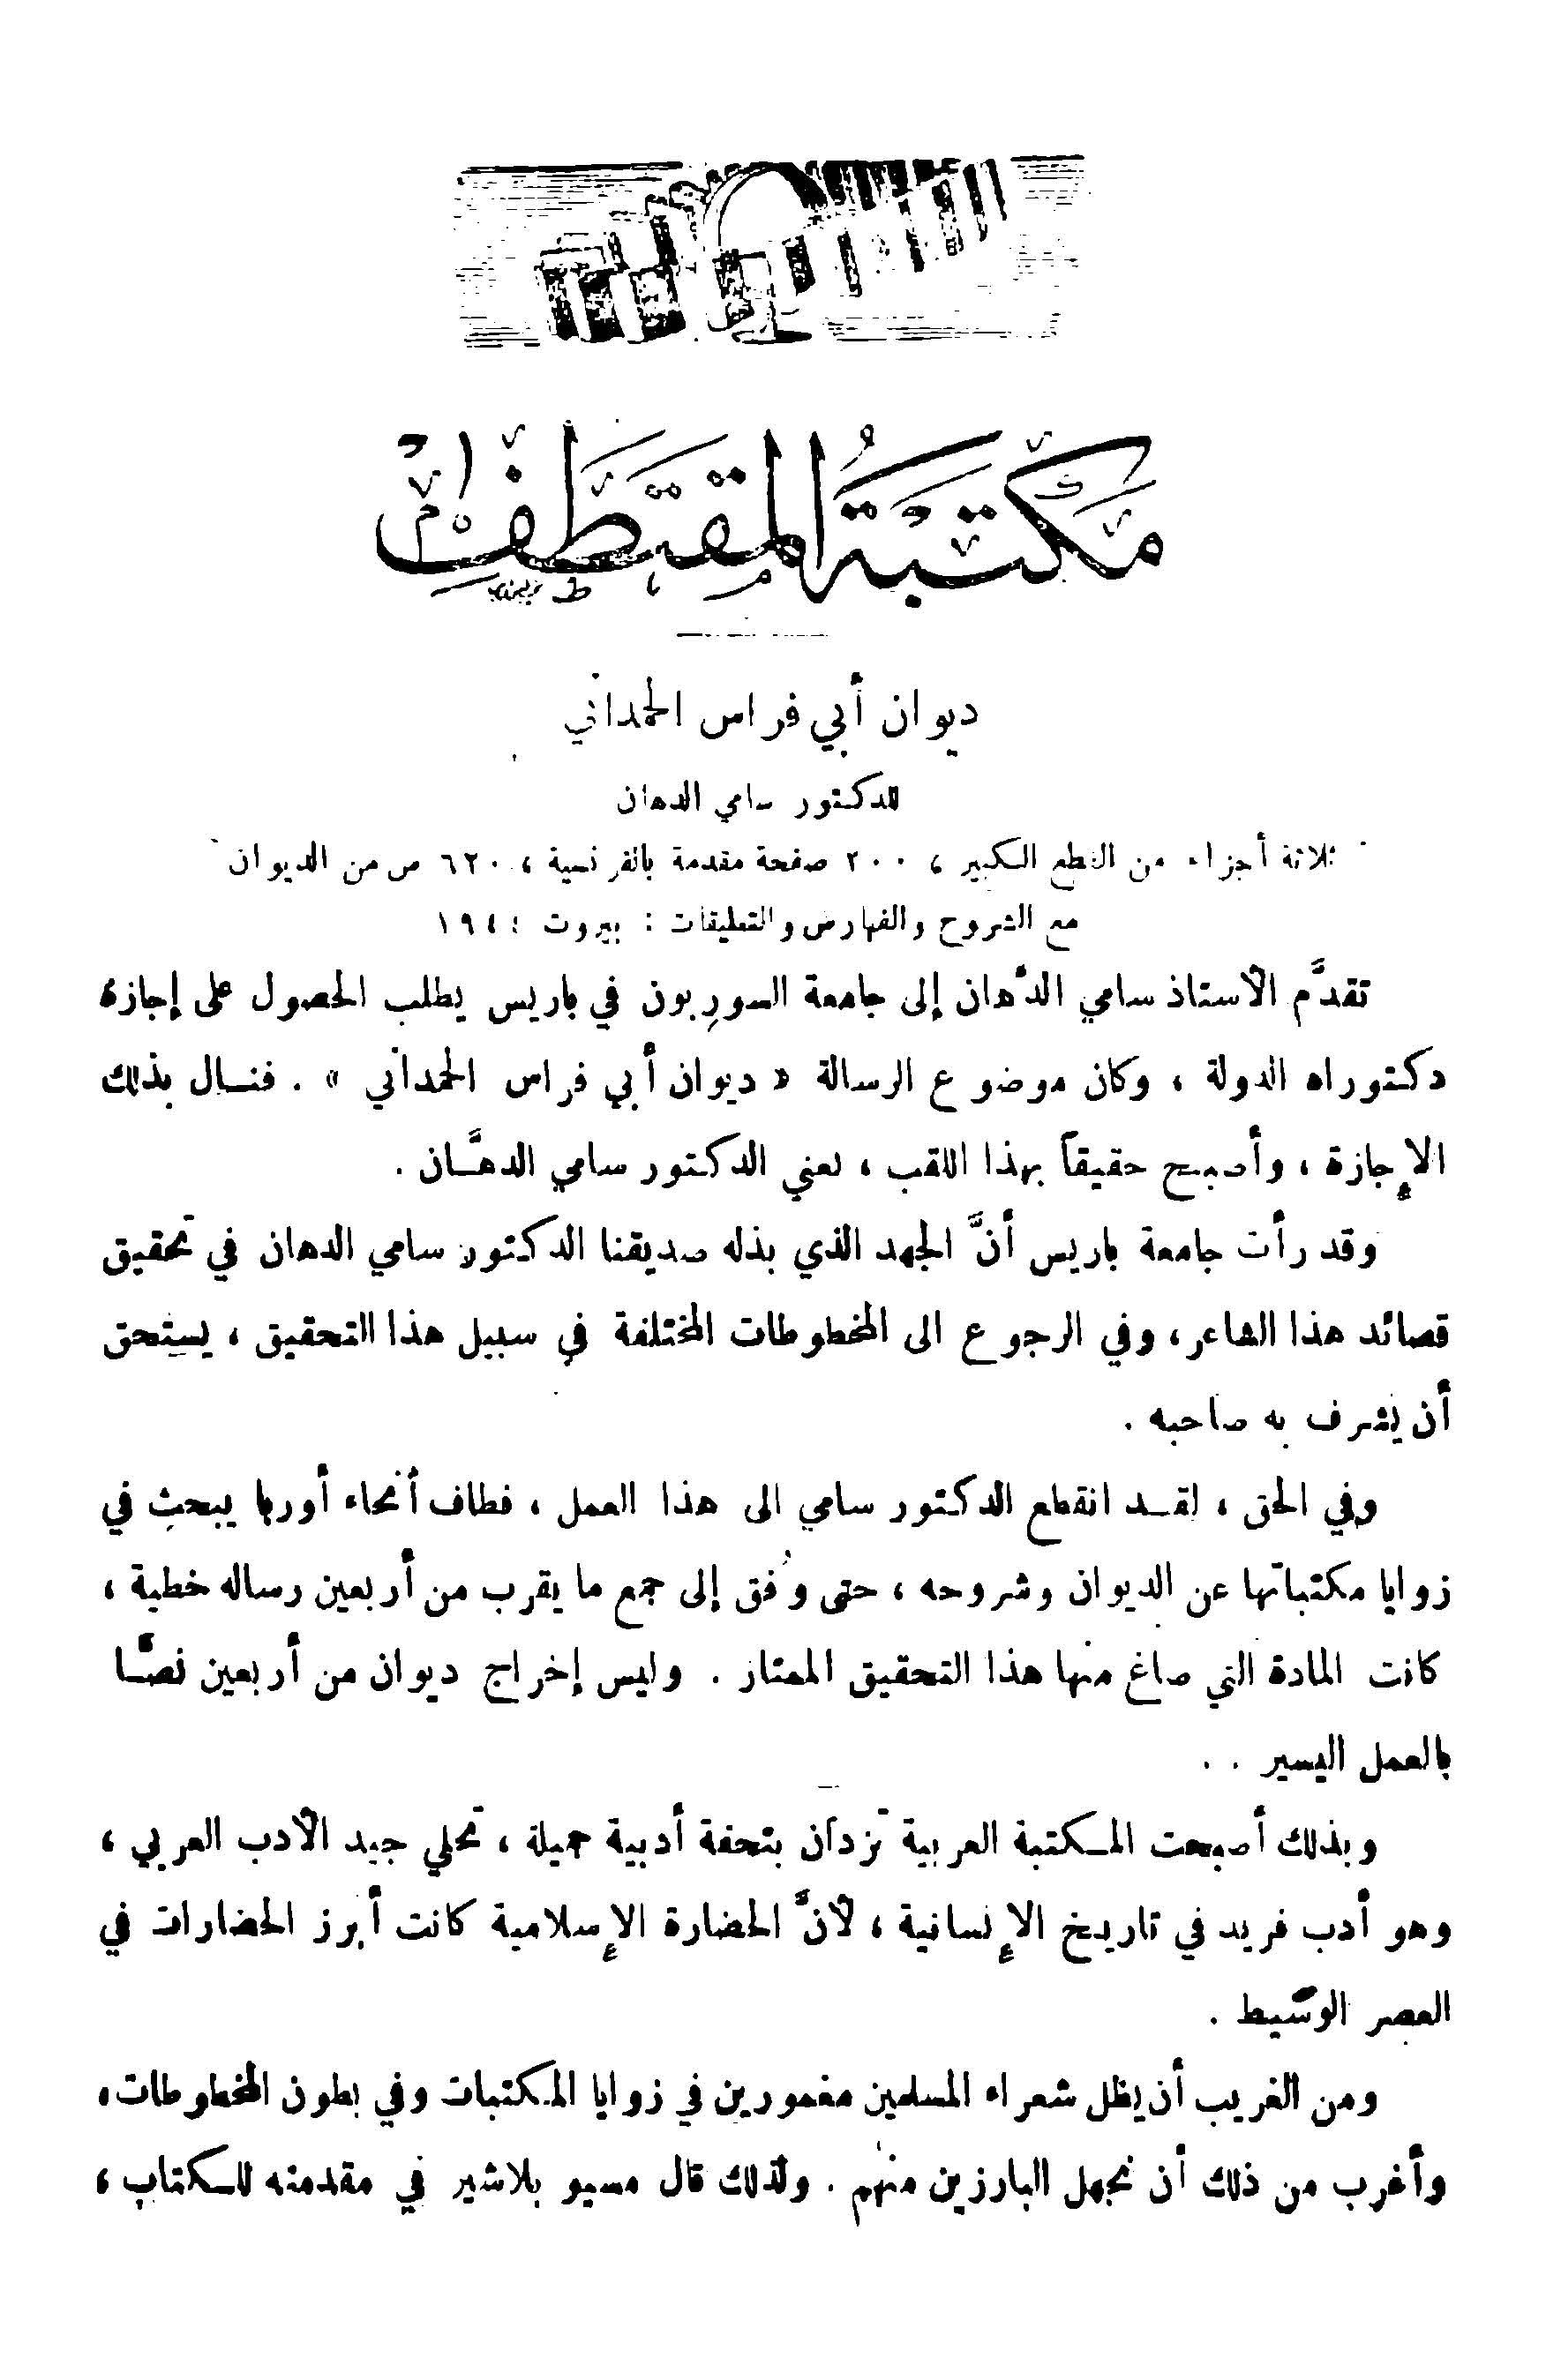 مكتبة المقتطف
ديوان أبي فراس الحمداني
للدكتور سامي الدهان
ثلاثة أجزاء من القطع الكبير ، ٢٠٠ صفحة مقدمة بالفرنسية ، ٦٢٠ ص من الديوان
مع الشروح والفهارس والتعليقات : بيروت ١٩٤٤
تقدَّم الأستاذ سامي الدَّهان إلى جامعة السوربون في باريس يطلب الحصول على إجازة
دكتوراه الدولة ، وكان موضوع الرسالة « ديوان أبي فراس الحمداني » . فنال بذلك
الإجازة ، وأصبح حقيقاً بهذا اللقب ، نعني الدكتور سامي الدهَّان .
وقد رأت جامعة باريس أنَّ الجهد الذي بذله صديقنا الدكتور سامي الدهان في تحقيق
قصائد هذا الشاعر ، وفي الرجوع الى المخطوطات المختلفة في سبيل هذا التحقيق ، يستحق
أن يشرف به صاحبه .
وفي الحق ، لقد انقطع الدكتور سامي الى هذا العمل ، فطاف أنحاء أوربا يبحث في
زوايا مكتباتها عن الديوان وشروحه ، حتى وُفق إلى جمع ما يقرب من أربعين رساله خطية ،
كانت المادة التي صاغ منها هذا التحقيق الممتاز . وليس إخراج ديوان من أربعين نصَّا
بالعمل اليسير . .
وبذلك أصبحت المكتبة العربية تزدان بتحفة أدبية جميلة ، تحلي جيد الأدب العربي ،
وهو أدب فريد في تاريخ الإنسانية ، لأنَّ الحضارة الإسلامية كانت أبرز الحضارات في
العصر الوسيط .
ومن الغريب أن يظل شعراء المسلمين مغمورين في زوايا المكتبات وفي بطون المخطوطات ،
وأغرب من ذلك أن نجهل البارزين منهم . ولذلك قال مسيو بلاشير في مقدمته للكتاب ،